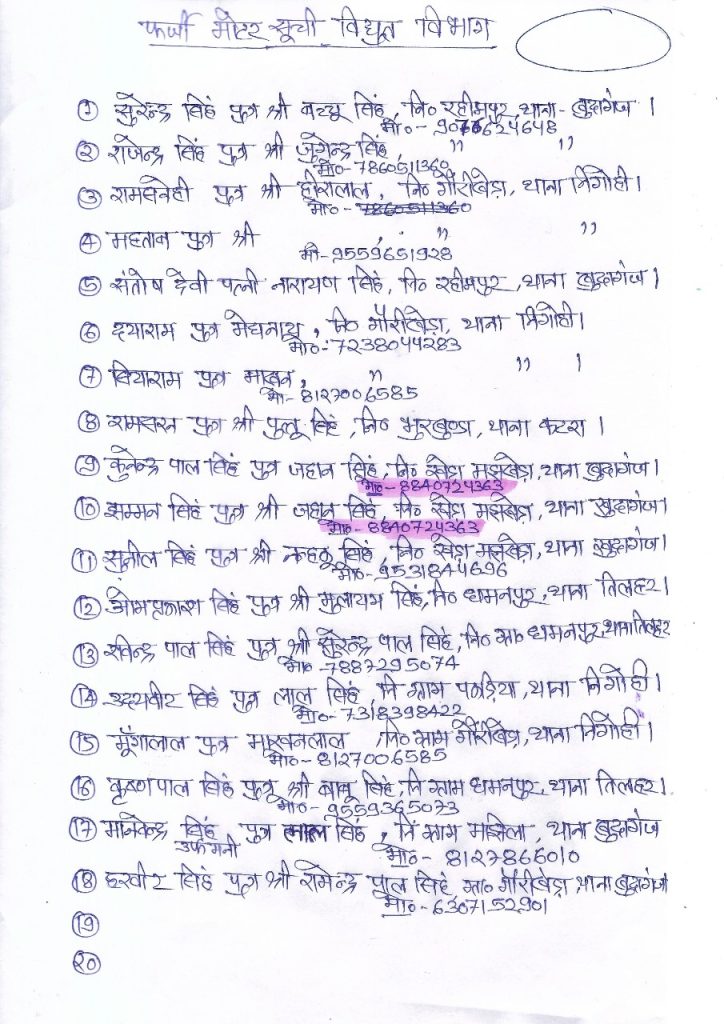 फर्जी मीटर सूची विद्युत विभाग
① सुरेन्द्र सिंह पुत्र श्री बच्चू सिंह, नि० रहीमपुर, थाना - खुदागंज ।
मो०- 9076624648
② राजेन्द्र सिंह पुत्र श्री जुगेन्द्र सिंह, " "
मो०- 7860511360
③ रामसनेही पुत्र श्री हीरालाल, नि० गौरीखेड़ा, थाना निगोही।
मो०- 7860511360
④ महताब पुत्र श्री " "
मो-9559651928
⑤ संतोष देवी पत्नी नारायण सिंह, नि० रहीमपुर, थाना खुदागंज ।
⑥ दयाराम पुत्र मेघनाथ, नि० गौरीखेड़ा, थाना निगोही।
मो०-7238044283
⑦ सियाराम पुत्र माखन, " " ।
मो- 8127006585
⑧ रामसरन पुत्र श्री पुलू सिंह, नि० भुरखुण्डा, थाना कटरा ।
⑨ कुलेन्द्र पाल सिंह पुत्र जहान सिंह, नि० खेड़ा मझखेड़ा, थाना खुदागंज।
मो०- 8840724363
⑩ सम्मन सिंह पुत्र श्री जहान सिंह, नि० खेड़ा मझखेड़ा, थाना खुदागंज।
मो०- 8840724363
⑪ सुनील सिंह पुत्र श्री सिंह, नि० खेड़ा मझखेड़ा, थाना खुदागंज।
मो०-9531844696
⑫ ओमप्रकाश सिंह पुत्र श्री मुलायम सिंह, नि० धमनपुर, थाना तिलहर।
⑬ रविन्द्र पाल सिंह पुत्र श्री सुरेन्द्र पाल सिंह, नि० ग्रा० धमनपुर, थाना तिलहर
मो० -7887295074
⑭ उदयवीर सिंह पुत्र लाल सिंह, नि ग्राम थाना निगोही।
मो०- 7318398422
⑮ मूँगालाल पुत्र माखनलाल, नि० ग्राम गौरीखेड़ा, थाना निगोही।
मो०- 8127006585
⑯ कृष्णपाल सिंह पुत्र श्री बाबू सिंह, नि ग्राम धमनपुर, थाना तिलहर।
मो०-9559365073
⑰ मानवेन्द्र सिंह पुत्र लाल सिंह, नि ग्राम थाना खुदागंज
उर्फ मनी मो०- 8127866010
⑱ हरवीर सिंह पुत्र श्री रामेन्द्र पाल सिंह, ग्रा० गौरीखेड़ा थाना खुदागंज
मो०-6307152901
⑲
⑳